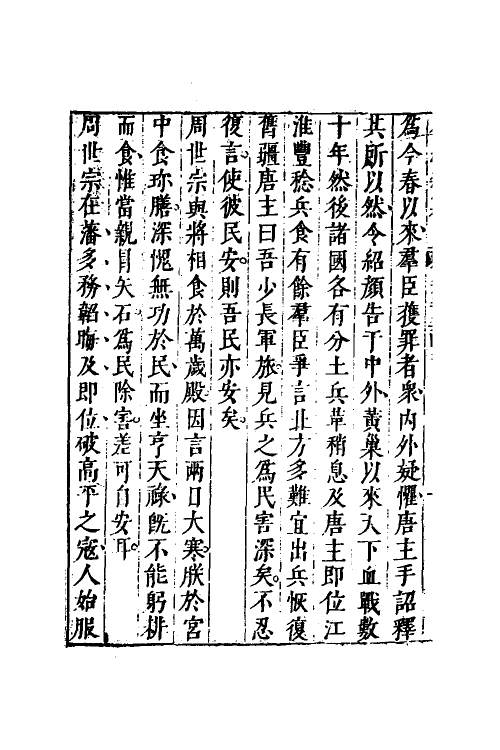 爲今春以來羣臣獲罪者衆内外疑懼唐主手詔釋
其所以然令紹顔告于中外黃巢以來天下血戰數
十年然後諸國各有分土兵革稍息及唐主即位江
淮豐稔兵食有餘羣臣爭言北方多難宜出兵恢復
舊疆唐主曰吾少長軍旅見兵之爲民害深矣不忍
復言使彼民安則吾民亦安矣
周世宗與將相食於萬歲殿因言兩日大寒朕於宮
中食珍膳深愧無功於民而坐亨天祿既不能躬耕
而食惟當親冒矢石爲民除害差可自安耳
周世宗在藩多務韜晦及即位破高平之寇人始服